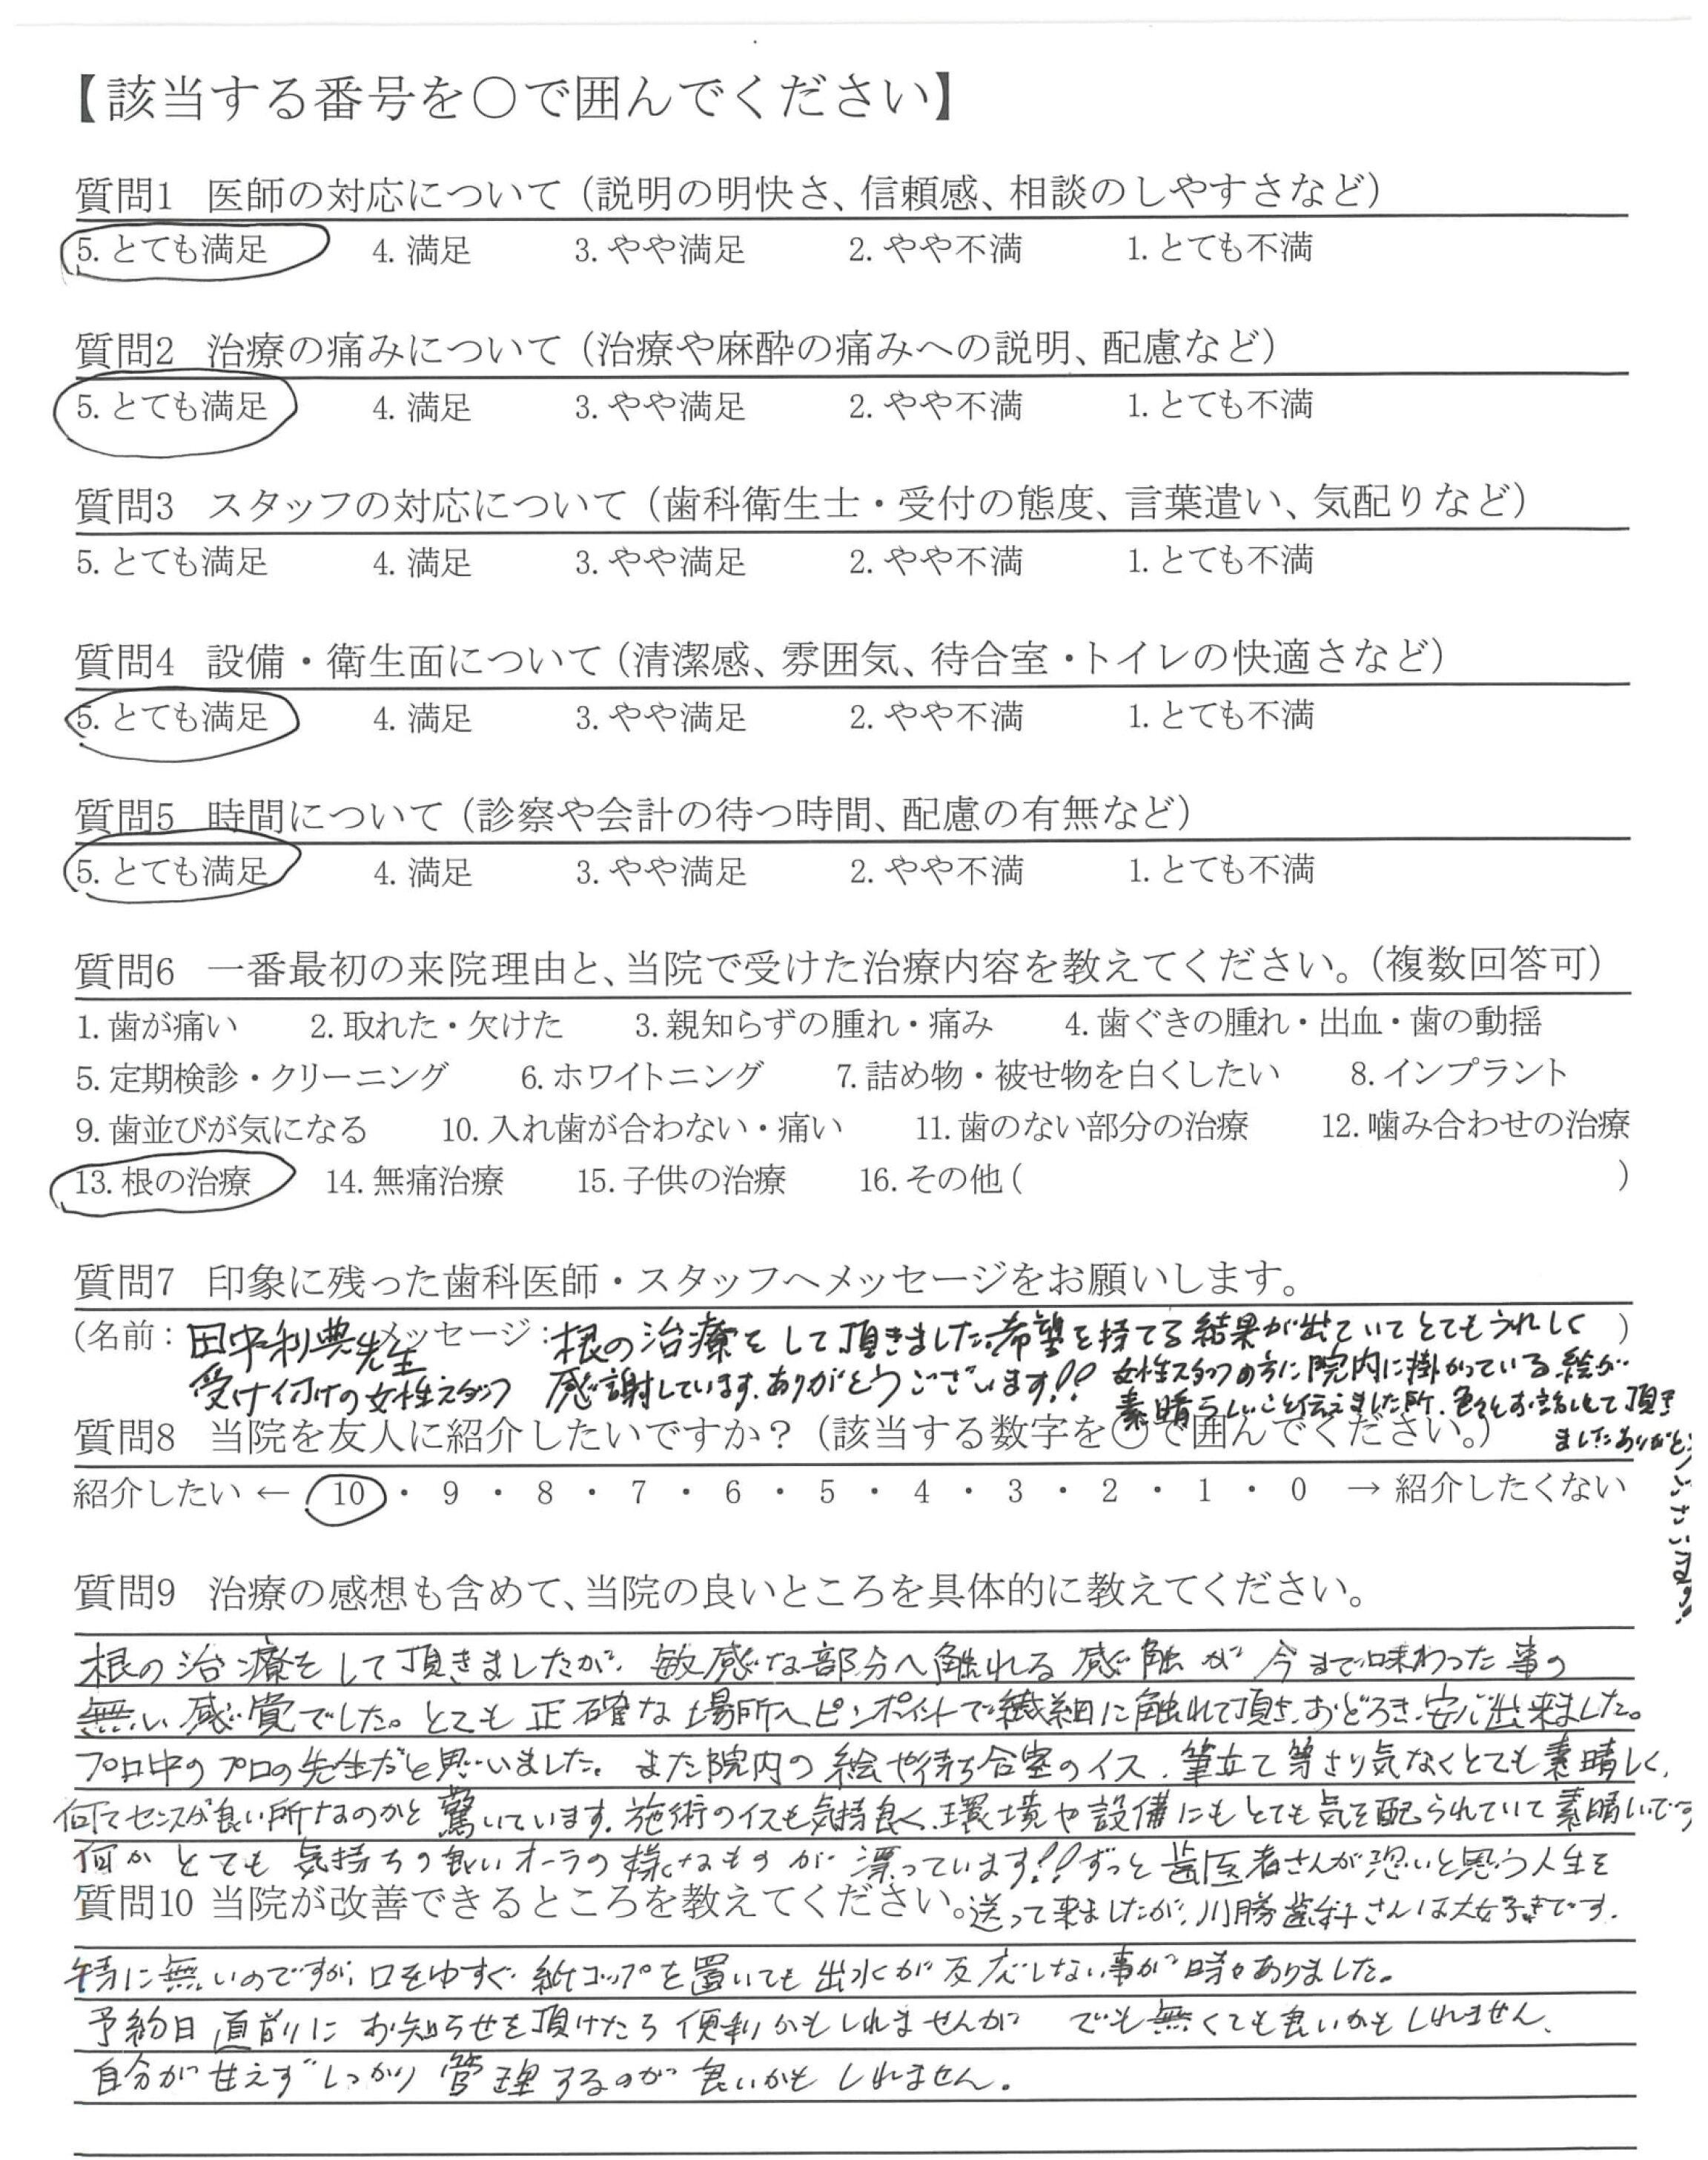 【該当する番号を○で囲んでください】
質問1 医師の対応について（説明の明快さ、信頼感、相談のしやすさなど）
5. とても満足 4. 満足 3. やや満足 2. やや不満 1. とても不満
質問2 治療の痛みについて（治療や麻酔の痛みへの説明、配慮など）
5. とても満足 4. 満足 3. やや満足 2. やや不満 1. とても不満
質問3 スタッフの対応について（歯科衛生士・受付の態度、言葉遣い、気配りなど）
5. とても満足 4. 満足 3. やや満足 2. やや不満 1. とても不満
質問4 設備・衛生面について（清潔感、雰囲気、待合室・トイレの快適さなど）
5. とても満足 4. 満足 3. やや満足 2. やや不満 1. とても不満
質問5 時間について（診察や会計の待つ時間、配慮の有無など）
5. とても満足 4. 満足 3. やや満足 2. やや不満 1. とても不満
質問6 一番最初の来院理由と、当院で受けた治療内容を教えてください。（複数回答可）
1. 歯が痛い 2. 取れた・欠けた 3. 親知らずの腫れ・痛み 4. 歯ぐきの腫れ・出血・歯の動揺
5. 定期検診・クリーニング 6. ホワイトニング 7. 詰め物・被せ物を白くしたい 8. インプラント
9. 歯並びが気になる 10. 入れ歯が合わない・痛い 11. 歯のない部分の治療 12. 噛み合わせの治療
13. 根の治療 14. 無痛治療 15. 子供の治療 16. その他（ ）
質問7 印象に残った歯科医師・スタッフへメッセージをお願いします。
（名前：田中利典先生 メッセージ：根の治療をして頂きました。希望を持てる結果が出ていてとてもうれしく ）
受け付けの女性スタッフ 感謝しています。ありがとうございます!! 女性スタッフの方に院内に掛かっている絵が
素晴らしいこと伝えました所、色々とお話しして頂き
ましたありがとうございます。
質問8 当院を友人に紹介したいですか？（該当する数字を○で囲んでください。）
紹介したい ← 10 ・ 9 ・ 8 ・ 7 ・ 6 ・ 5 ・ 4 ・ 3 ・ 2 ・ 1 ・ 0 → 紹介したくない
質問9 治療の感想も含めて、当院の良いところを具体的に教えてください。
根の治療をして頂きましたが、敏感な部分へ触れる感触が今まで味わった事の
無い感覚でした。とても正確な場所へピンポイントで繊細に触れて頂き、おどろき、安心出来ました。
プロ中のプロの先生だと思いました。また院内の絵や待ち合室のイス、筆立て等さり気なくとても素晴しく、
何てセンスが良い所なのかと驚いています。施術のイスも気持良く、環境や設備にもとても気を配られていて素晴しいです
何かとても気持ちの良いオーラの様なものが漂っています!! ずっと歯医者さんが恐いと思う人生を
送って来ましたが、川勝歯科さんは大好きです。
質問10 当院が改善できるところを教えてください。
特に無いのですが、口をゆすぐ紙コップを置いても出水が反応しない事が時々ありました。
予約日直前にお知らせを頂けたら便利かもしれませんが でも無くても良いかもしれません、
自分が甘えずしっかり管理するのが良いかもしれません。